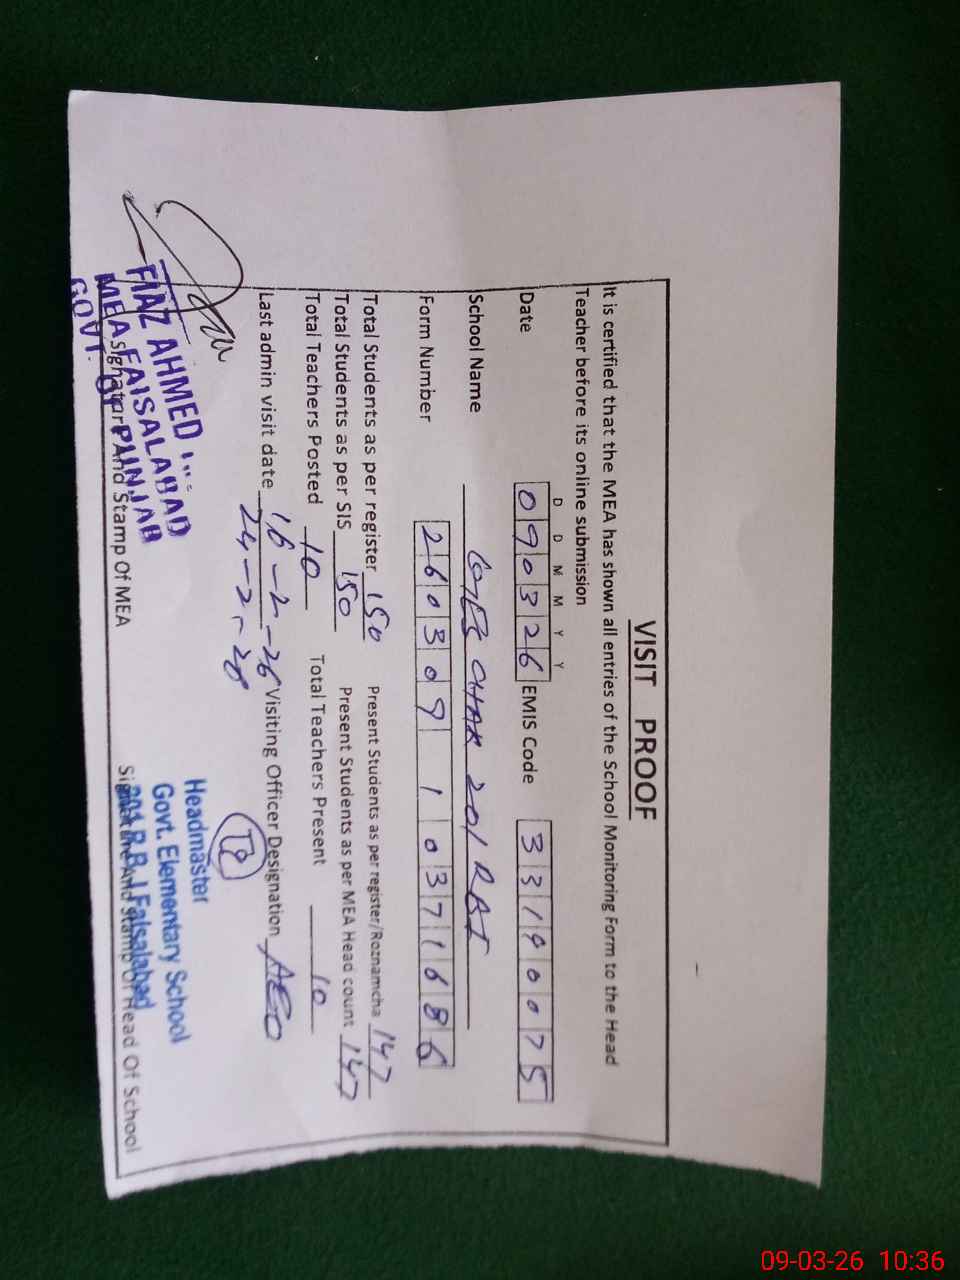 VISIT PROOF
It is certified that the MEA has shown all entries of the School Monitoring Form to the Head
Teacher before its online submission
D D M M Y Y
Date 090326 EMIS Code 33190075
School Name GES CHAK 201 RBI
Form Number 260309 1 0371686
Total Students as per register 150 Present Students as per register/Roznamcha 147
Total Students as per SIS 150 Present Students as per MEA Head count 147
Total Teachers Posted 10 Total Teachers Present 10
Last admin visit date 16-2-26 Visiting Officer Designation AEO
24-2-26
FIAZ AHMED
MEA FAISALABAD
GOVT. OF PUNJAB
And Stamp Of MEA
Headmaster
Govt. Elementary School
201 R.B I Faisalabad
And Stamp Of Head Of School
09-03-26 10:36